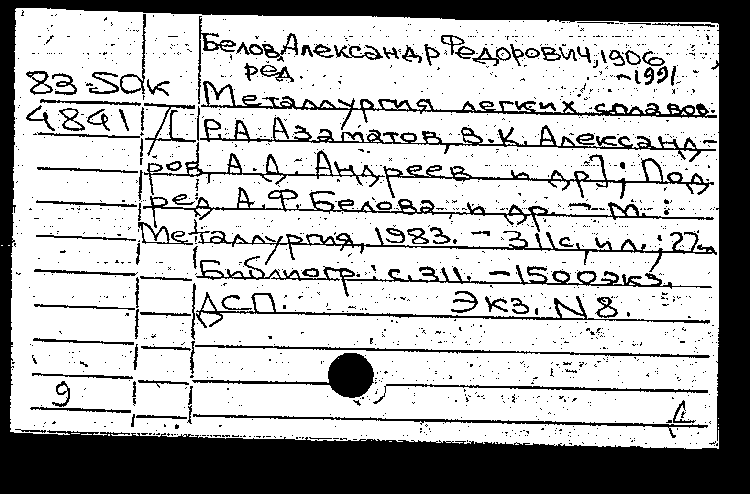 Белов, Александр Федорович, 1906
ред. -1991
83-5ОК
Металлургия легких сплавов.
4841 /[ Р.А. Азаматов, В.К. Александ-
ров, А.Д. Андреев и др]; Под
ред А.Ф. Белова, и др. - М. :
Металлургия, 1983. - 311с, ил.; 22см
Библиогр.: с.311. - 1500экз.
ДСП. Экз. N 8.
9